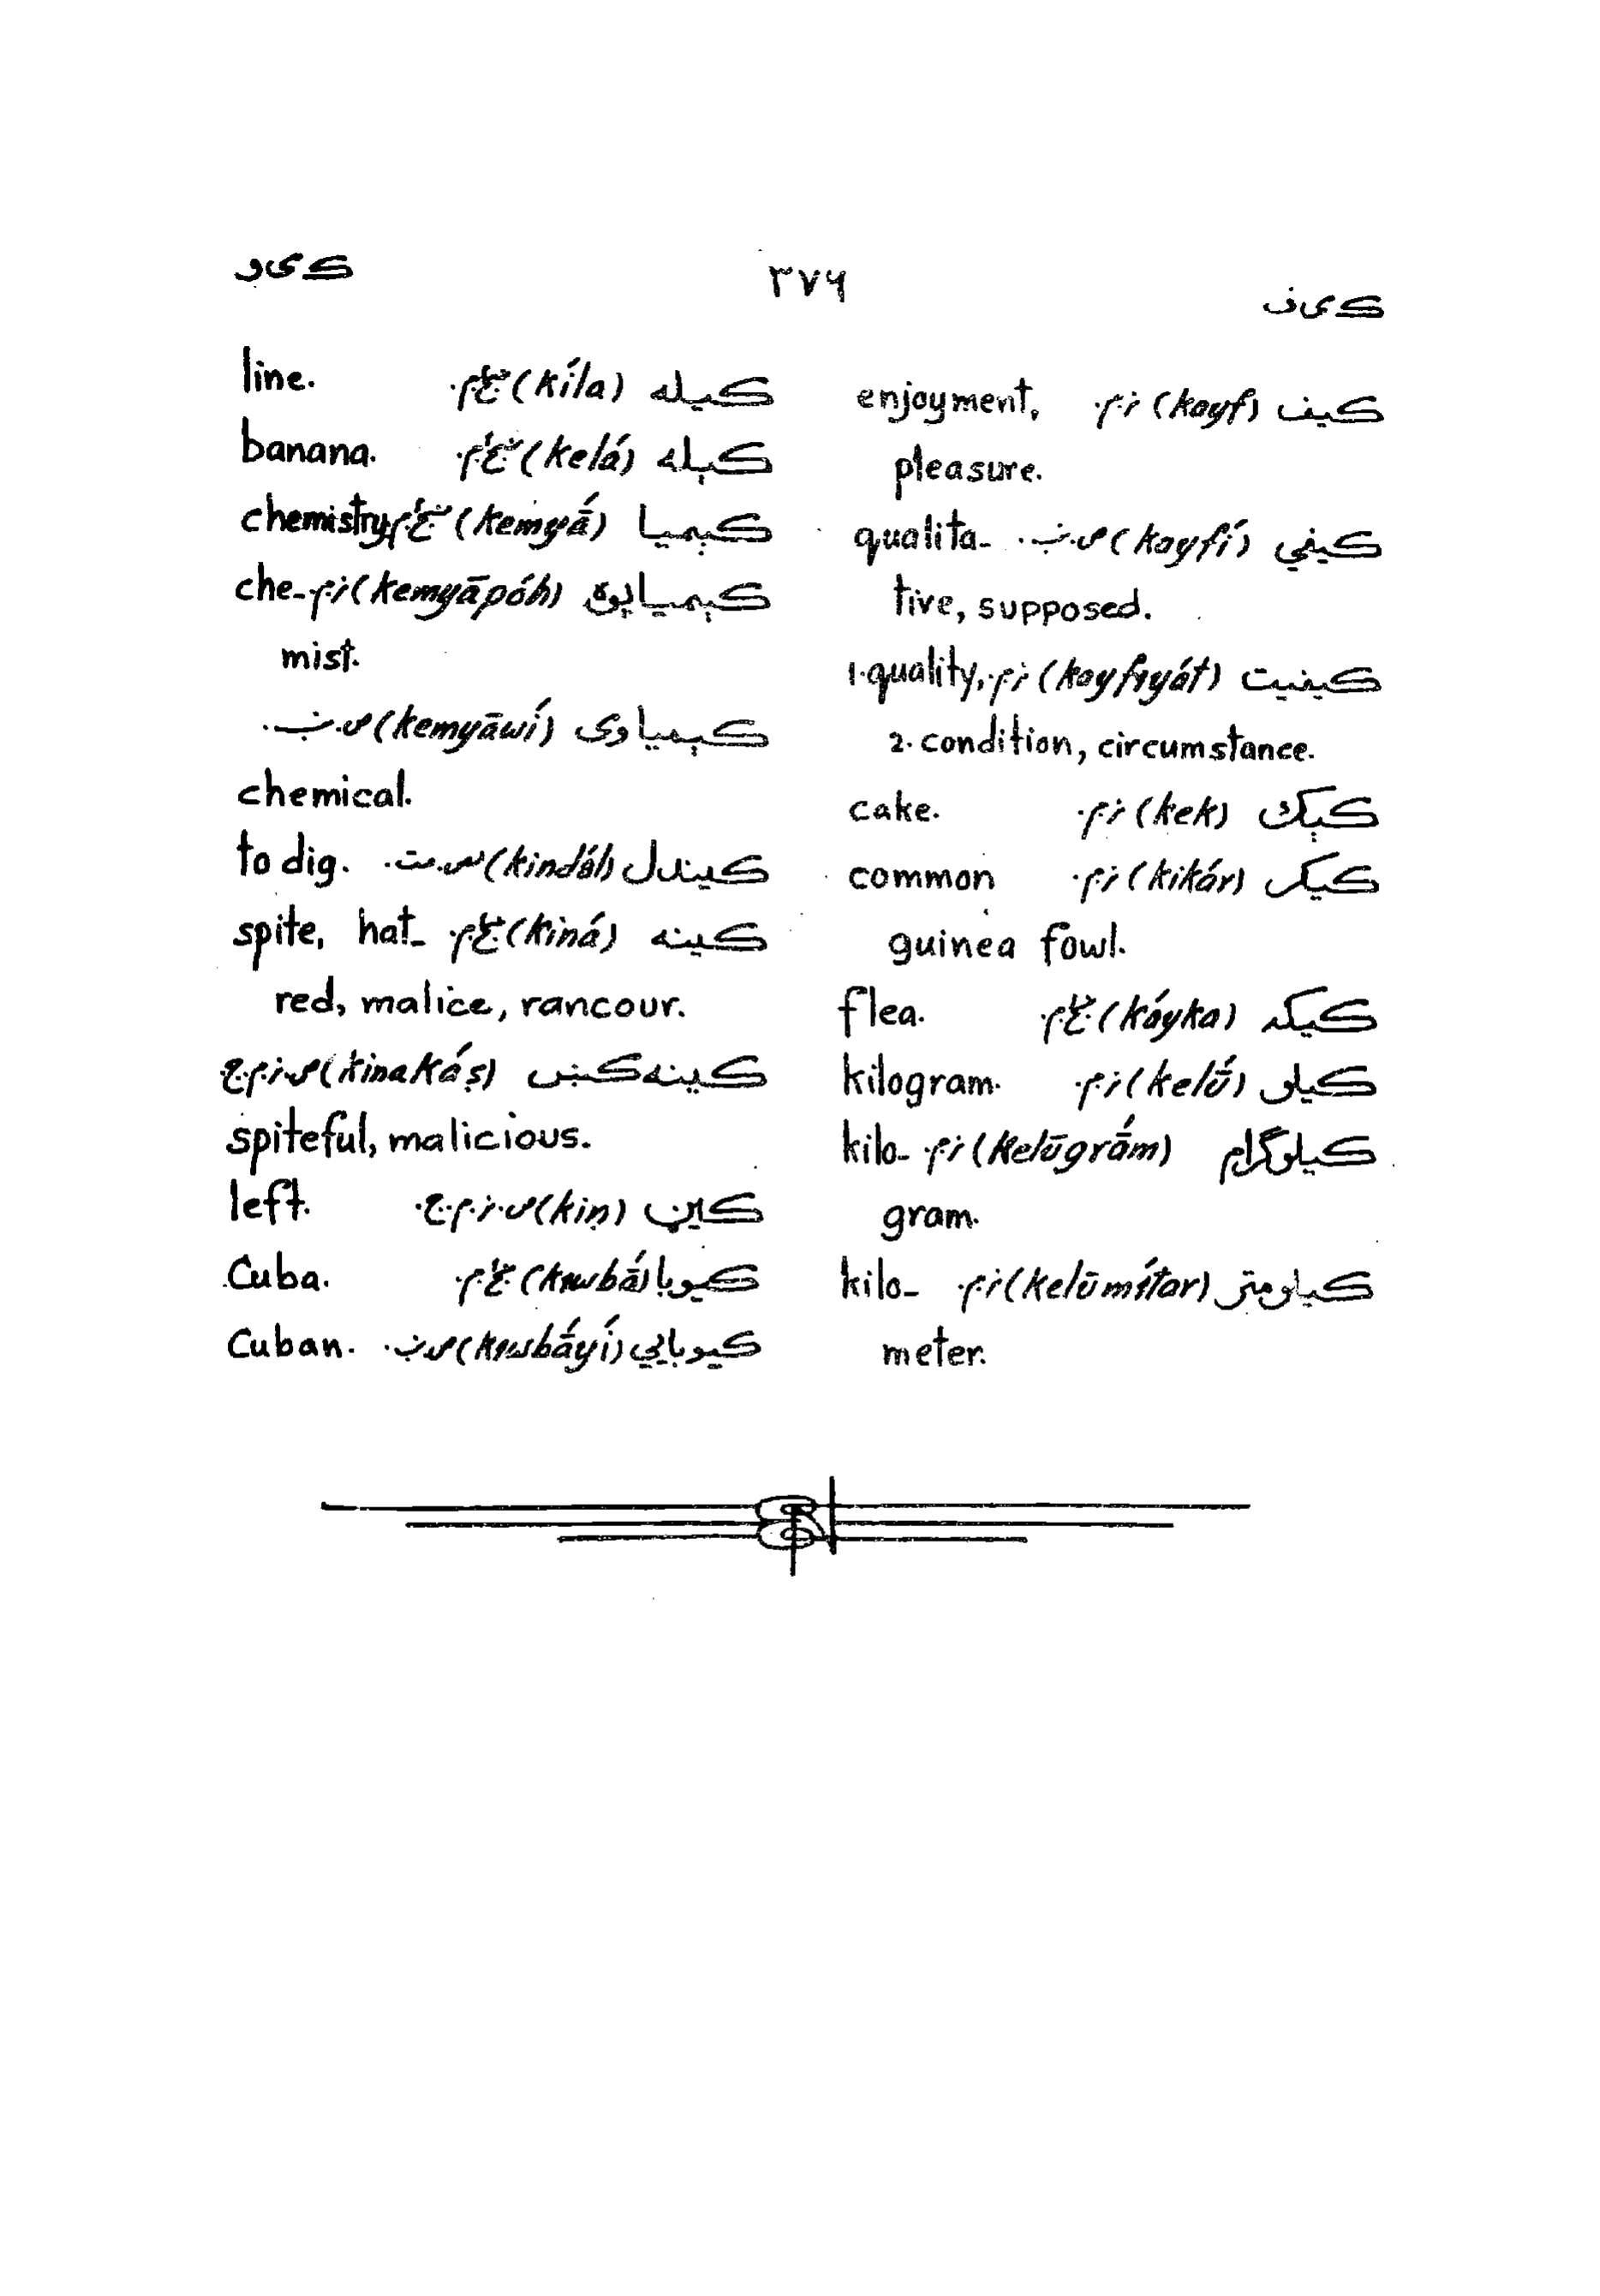 کی‌ف
۳۷۶
کی‌و
کیف (kayf) ز.م. enjoyment,
pleasure.
کیفي (kayfí) ص.ن. qualita-
tive, supposed.
کیفیت (kayfıyát) ز.م. 1. quality,
2. condition, circumstance.
کېک (kek) ز.م. cake.
کیکر (kikár) ز.م. common
guinea fowl.
کیکه (káyka) ښځ.م. flea.
کیلو (kelṹ) ز.م. kilogram.
کیلوگرام (kelūgrā́m) ز.م. kilo-
gram.
کیلومتر (kelūmítar) ز.م. kilo-
meter.
کیله (kíla) ښځ.م. line.
کېله (kelá) ښځ.م. banana.
کېمیا (kemyā́) ښځ.م. chemistry.
کېمیاپوه (kemyāpóh) ز.م. che-
mist.
کېمیاوی (kemyāwí) ص.ن.
chemical.
کیندل (kində́l) س.مت. to dig.
کینه (kiná) ښځ.م. spite, hat-
red, malice, rancour.
کینه‌کښ (kinakáṣ) ص.ز.م.ج
spiteful, malicious.
کیڼ (kiṇ) ص.ز.م.ج. left.
کیوبا (kıwbā́) ښځ.م. Cuba.
کیوبایي (kıwbā́yí) ص.ن. Cuban.